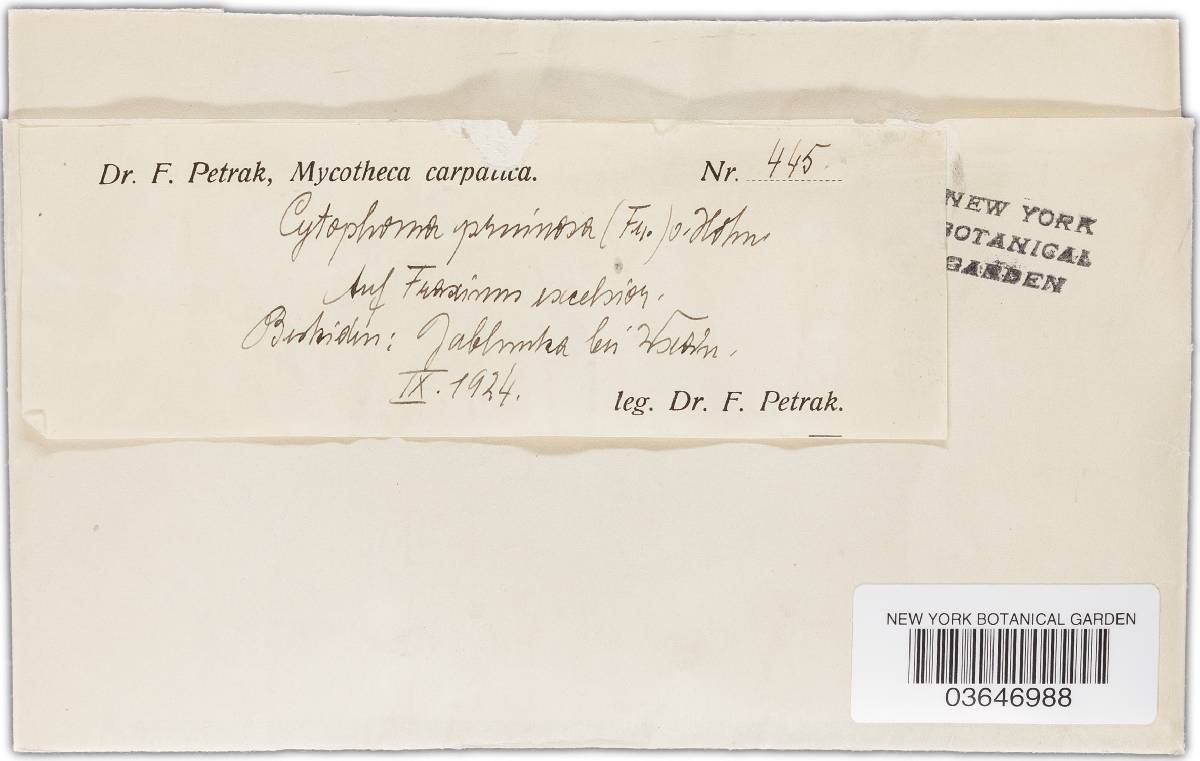 Dr. F. Petrak, Mycotheca carpatica. Nr. 445.
Cytophoma pruinosa (Fr.) v. Höhn.
Auf Fraxinus excelsior.
Beskiden: Jablunka bei Wsetin.
IX. 1924.
leg. Dr. F. Petrak.
NEW YORK
BOTANICAL
GARDEN
NEW YORK BOTANICAL GARDEN
03646988